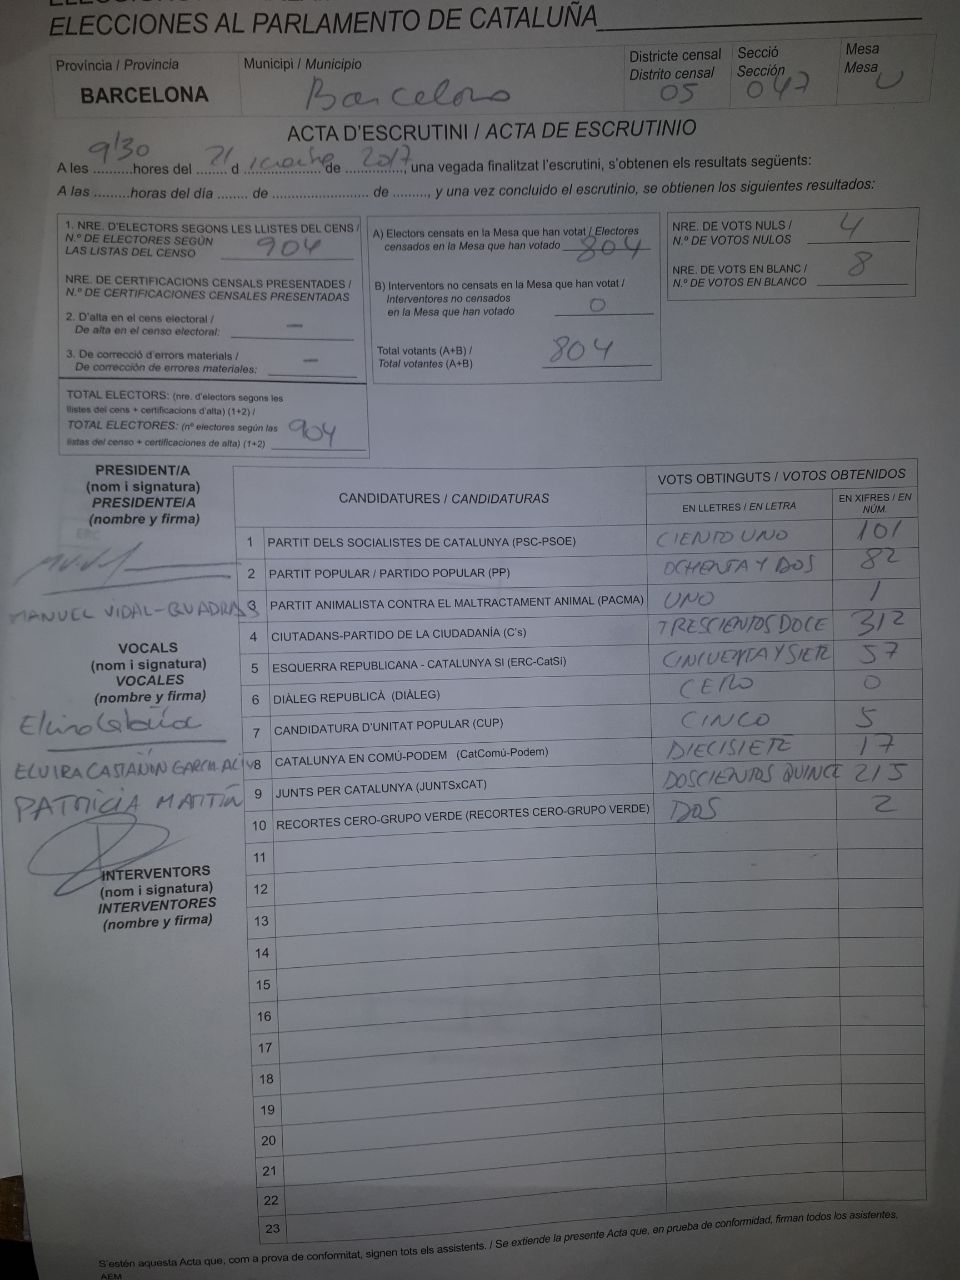 ELECCIONES AL PARLAMENTO DE CATALUÑA
Província / Provincia
BARCELONA
Municipi / Municipio
Barcelona
Districte censal
Distrito censal
05
Secció
Sección
047
Mesa
Mesa
U
ACTA D'ESCRUTINI / ACTA DE ESCRUTINIO
A les 9'30 hores del 21 d de 2017, una vegada finalitzat l'escrutini, s'obtenen els resultats següents:
A las .........horas del día ....... de ........................ de ........, y una vez concluido el escrutinio, se obtienen los siguientes resultados:
1. NRE. D'ELECTORS SEGONS LES LLISTES DEL CENS /
N.º DE ELECTORES SEGÚN
LAS LISTAS DEL CENSO 904
NRE. DE CERTIFICACIONS CENSALS PRESENTADES /
N.º DE CERTIFICACIONES CENSALES PRESENTADAS
2. D'alta en el cens electoral /
De alta en el censo electoral: —
3. De correcció d'errors materials /
De corrección de errores materiales: —
TOTAL ELECTORS: (nre. d'electors segons les
llistes del cens + certificacions d'alta) (1+2) /
TOTAL ELECTORES: (nº electores según las
listas del censo + certificaciones de alta) (1+2) 904
A) Electors censats en la Mesa que han votat / Electores
censados en la Mesa que han votado 804
B) Interventors no censats en la Mesa que han votat /
Interventores no censados
en la Mesa que han votado 0
Total votants (A+B) /
Total votantes (A+B) 804
NRE. DE VOTS NULS /
N.º DE VOTOS NULOS 4
NRE. DE VOTS EN BLANC /
N.º DE VOTOS EN BLANCO 8
PRESIDENT/A
(nom i signatura)
PRESIDENTE/A
(nombre y firma)
MANUEL VIDAL-QUADRAS
VOCALS
(nom i signatura)
VOCALES
(nombre y firma)
ELVIRA CASTAÑÓN GARCIA-ALIX
PATRICIA MARTÍN
INTERVENTORS
(nom i signatura)
INTERVENTORES
(nombre y firma)
CANDIDATURES / CANDIDATURAS
VOTS OBTINGUTS / VOTOS OBTENIDOS
EN LLETRES / EN LETRA
EN XIFRES / EN NÚM.
1 PARTIT DELS SOCIALISTES DE CATALUNYA (PSC-PSOE) CIENTO UNO 101
2 PARTIT POPULAR / PARTIDO POPULAR (PP) OCHENTA Y DOS 82
3 PARTIT ANIMALISTA CONTRA EL MALTRACTAMENT ANIMAL (PACMA) UNO 1
4 CIUTADANS-PARTIDO DE LA CIUDADANÍA (C's) TRESCIENTOS DOCE 312
5 ESQUERRA REPUBLICANA - CATALUNYA SI (ERC-CatSi) CINCUENTA Y SIETE 57
6 DIÀLEG REPUBLICÀ (DIÀLEG) CERO 0
7 CANDIDATURA D'UNITAT POPULAR (CUP) CINCO 5
8 CATALUNYA EN COMÚ-PODEM (CatComú-Podem) DIECISIETE 17
9 JUNTS PER CATALUNYA (JUNTSxCAT) DOSCIENTOS QUINCE 215
10 RECORTES CERO-GRUPO VERDE (RECORTES CERO-GRUPO VERDE) DOS 2
11
12
13
14
15
16
17
18
19
20
21
22
23
S'estén aquesta Acta que, com a prova de conformitat, signen tots els assistents. / Se extiende la presente Acta que, en prueba de conformidad, firman todos los asistentes.